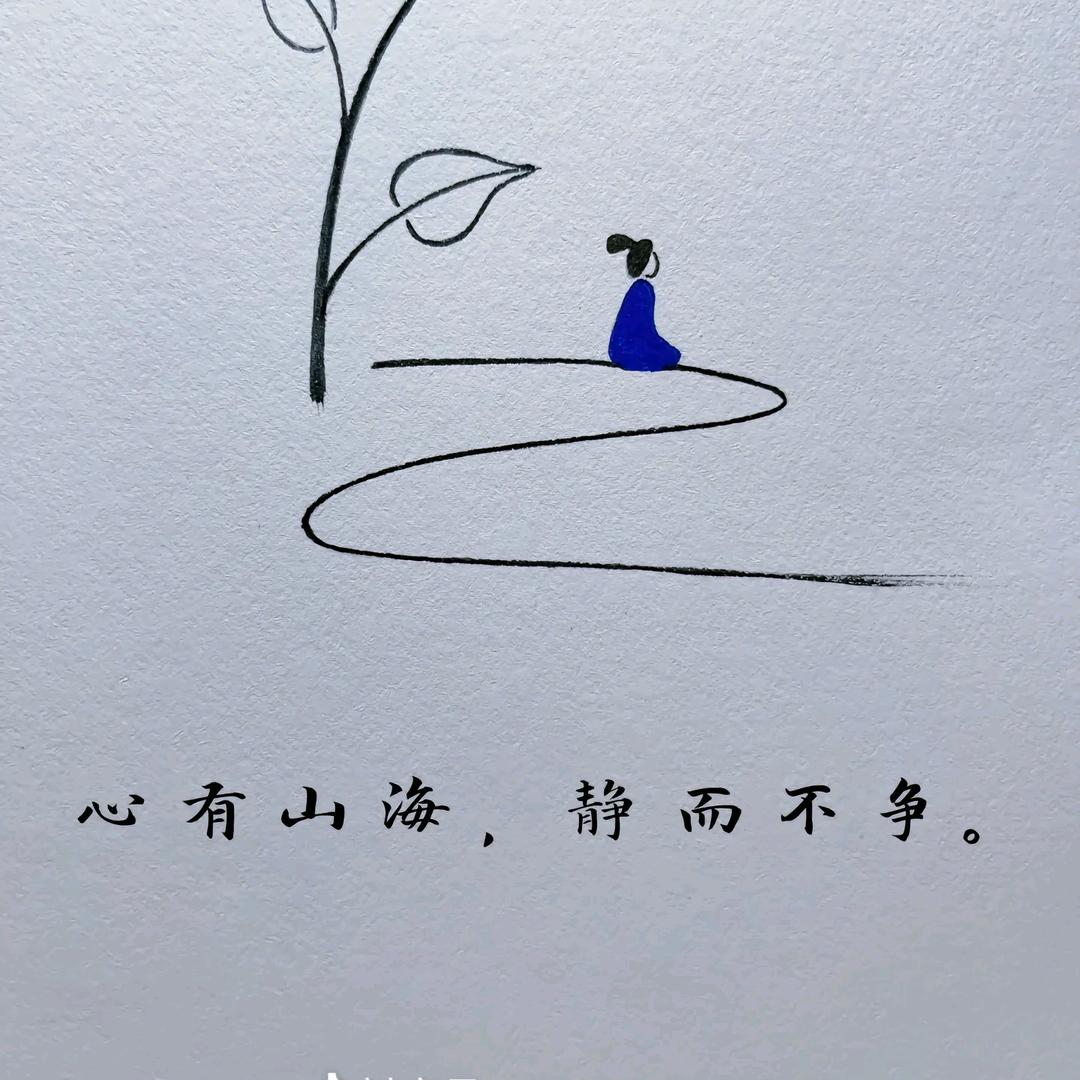 心有山海，静而不争。